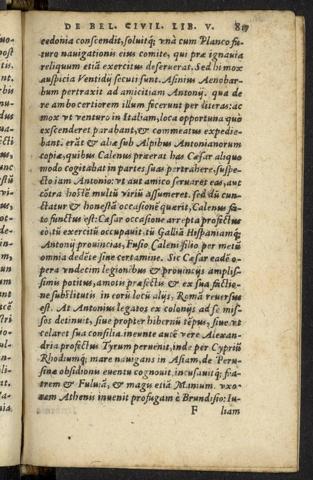 DE BEL. CIVIL. LIB. V.
cedonia conscendit, soluitq́; vnà cum Planco fu-
turo nauigationis eius comite, qui præ ignauia
reliquum etiã exercitus deseruerat. Sed hi mox
auspicia Ventidij secuti sunt. Asinius Aenobar-
bum pertraxit ad amicitiam Antonij. qua de
re ambo certiorem illum fecerunt per literas: ac
mox vt venturo in Italiam, loca opportuna quò
exscenderet parabant, & commeatus expedie-
bant. erãt & aliæ sub Alpibus Antonianorum
copiæ, quibus Calenus præerat has Cæsar aliquo
modo cogitabat in partes suas pertrahere, suspe-
cto iam Antonio: vt aut amico seruaret eas, aut
cõtra hostẽ multũ viriũ assumeret. sed dũ cun-
ctatur & honestã occasionẽ quærit, Calenus fa-
to functus est: Cæsar occasione arrepta profectus
eò, tũ exercitũ occupauit. tũ Galliã Hispaniamq́;
Antonij prouincias, Fusio Caleni filio per metũ
omnia dedẽte sine certamine. Sic Cæsar eadẽ o-
pera vndecim legionibus & prouincijs amplis-
simis potitus, amotis præfectis & ex sua factio-
ne substitutis in eorũ locũ alijs, Romã reuersus
est. At Antonius legatos ex colonijs ad se mis-
sos detinuit, siue propter hibernũ tẽpus, siue vt
celaret sua consilia ineunte aucẽ vere Alexan-
dria profectus Tyrum peruenit, inde per Cypriũ
Rhodumq́; mare nauigans in Asiam, de Peru-
sinæ obsidionis euentu cognouit, incusauitq́; fra-
trem & Fuluiã, & magis etiã Manium. vxo-
rem Athenis inuenit profugam è Brundisio: Iu-
F liam